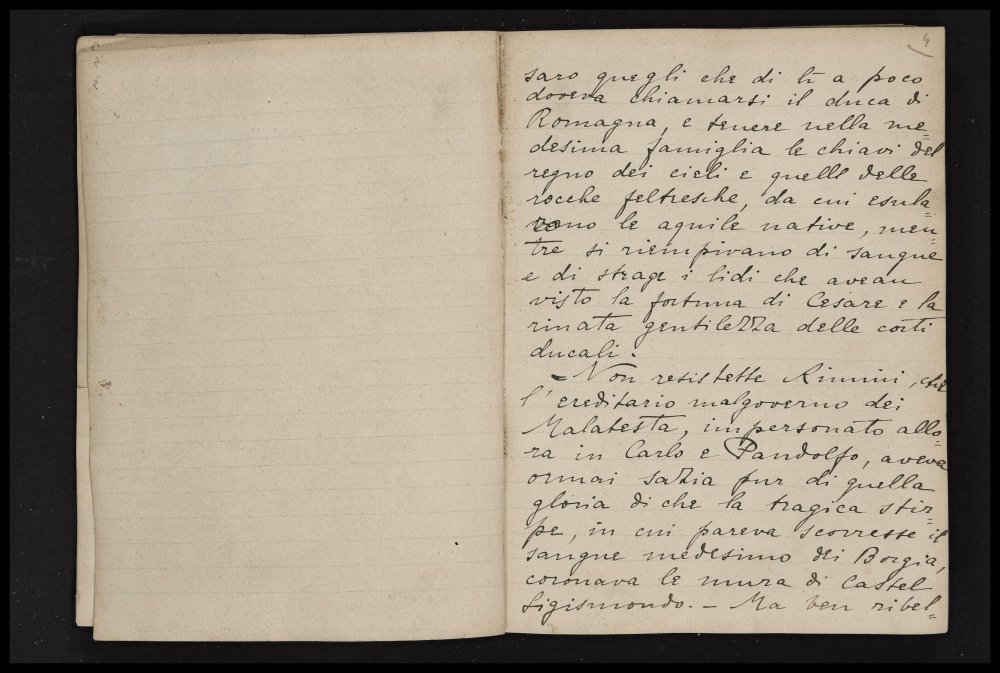 4
saro quegli che di lì a poco
doveva chiamarsi il duca di
Romagna, e tenere nella me=
desima famiglia le chiavi del
regno dei cieli e quelle delle
rocche feltresche, da cui esula=
vano le aquile native, men=
tre si riempivano di sangue
e di strage i lidi che avean
visto la fortuna di Cesare e la
rinata gentilezza delle corti
ducali.
Non resistette Rimini, che
l' ereditario malgoverno dei
Malatesta, impersonato allo=
ra in Carlo e Pandolfo, aveva
ormai sazia pur di quella
gloria di che la tragica stir=
pe, in cui pareva scorresse il
sangue medesimo dei Borgia,
coronava le mura di Castel
Sigismondo. – Ma ben ribel=